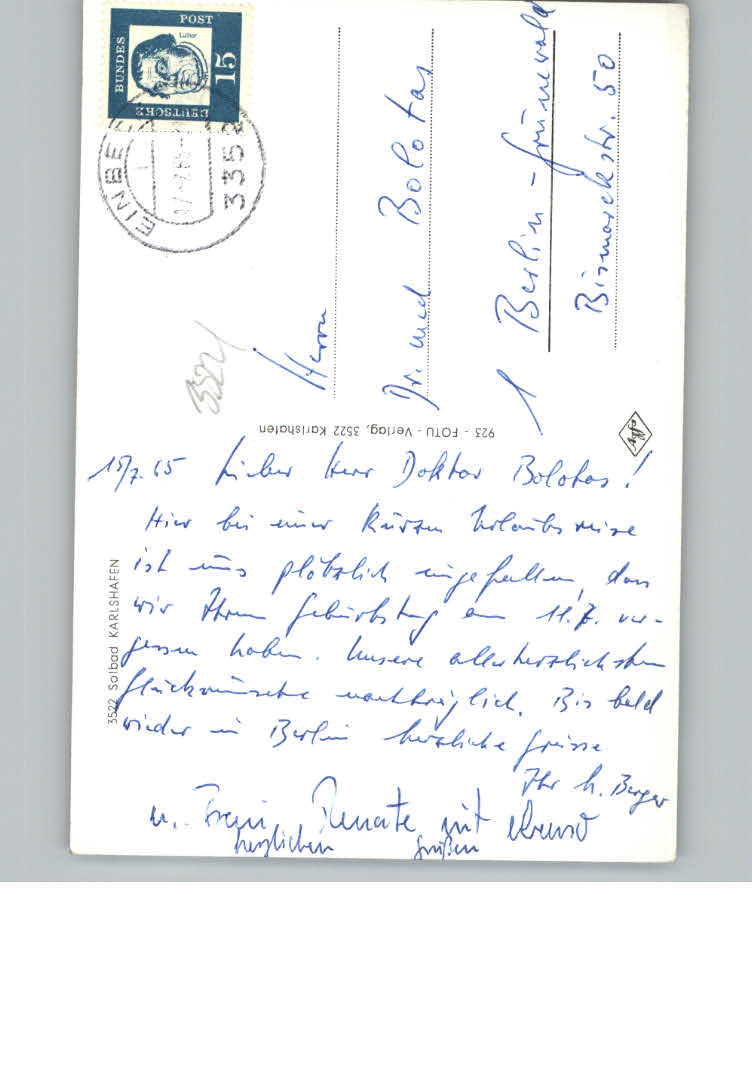 DEUTSCHE
BUNDES
POST
Luther
15
EINBE
3352
3522
Herrn
Dr. med Bolotas
1 Berlin - Grünewald
Bismarckstr. 50
923 - FOTU - Verlag, 3522 Karlshafen
Agfa
3522 Solbad KARLSHAFEN
15/7.65 Lieber Herr Doktor Bolotas!
Hier bei einer kurzen Urlaubsreise
ist uns plötzlich eingefallen, dass
wir Ihren Geburtstag am 11.7. ver-
gessen haben. Unsere allerherzlichsten
Glückwünsche nachträglich. Bis bald
wieder in Berlin herzliche Grüsse
Ihr h. Berger
u. Frau Renate mit
herzlichen Grüßen